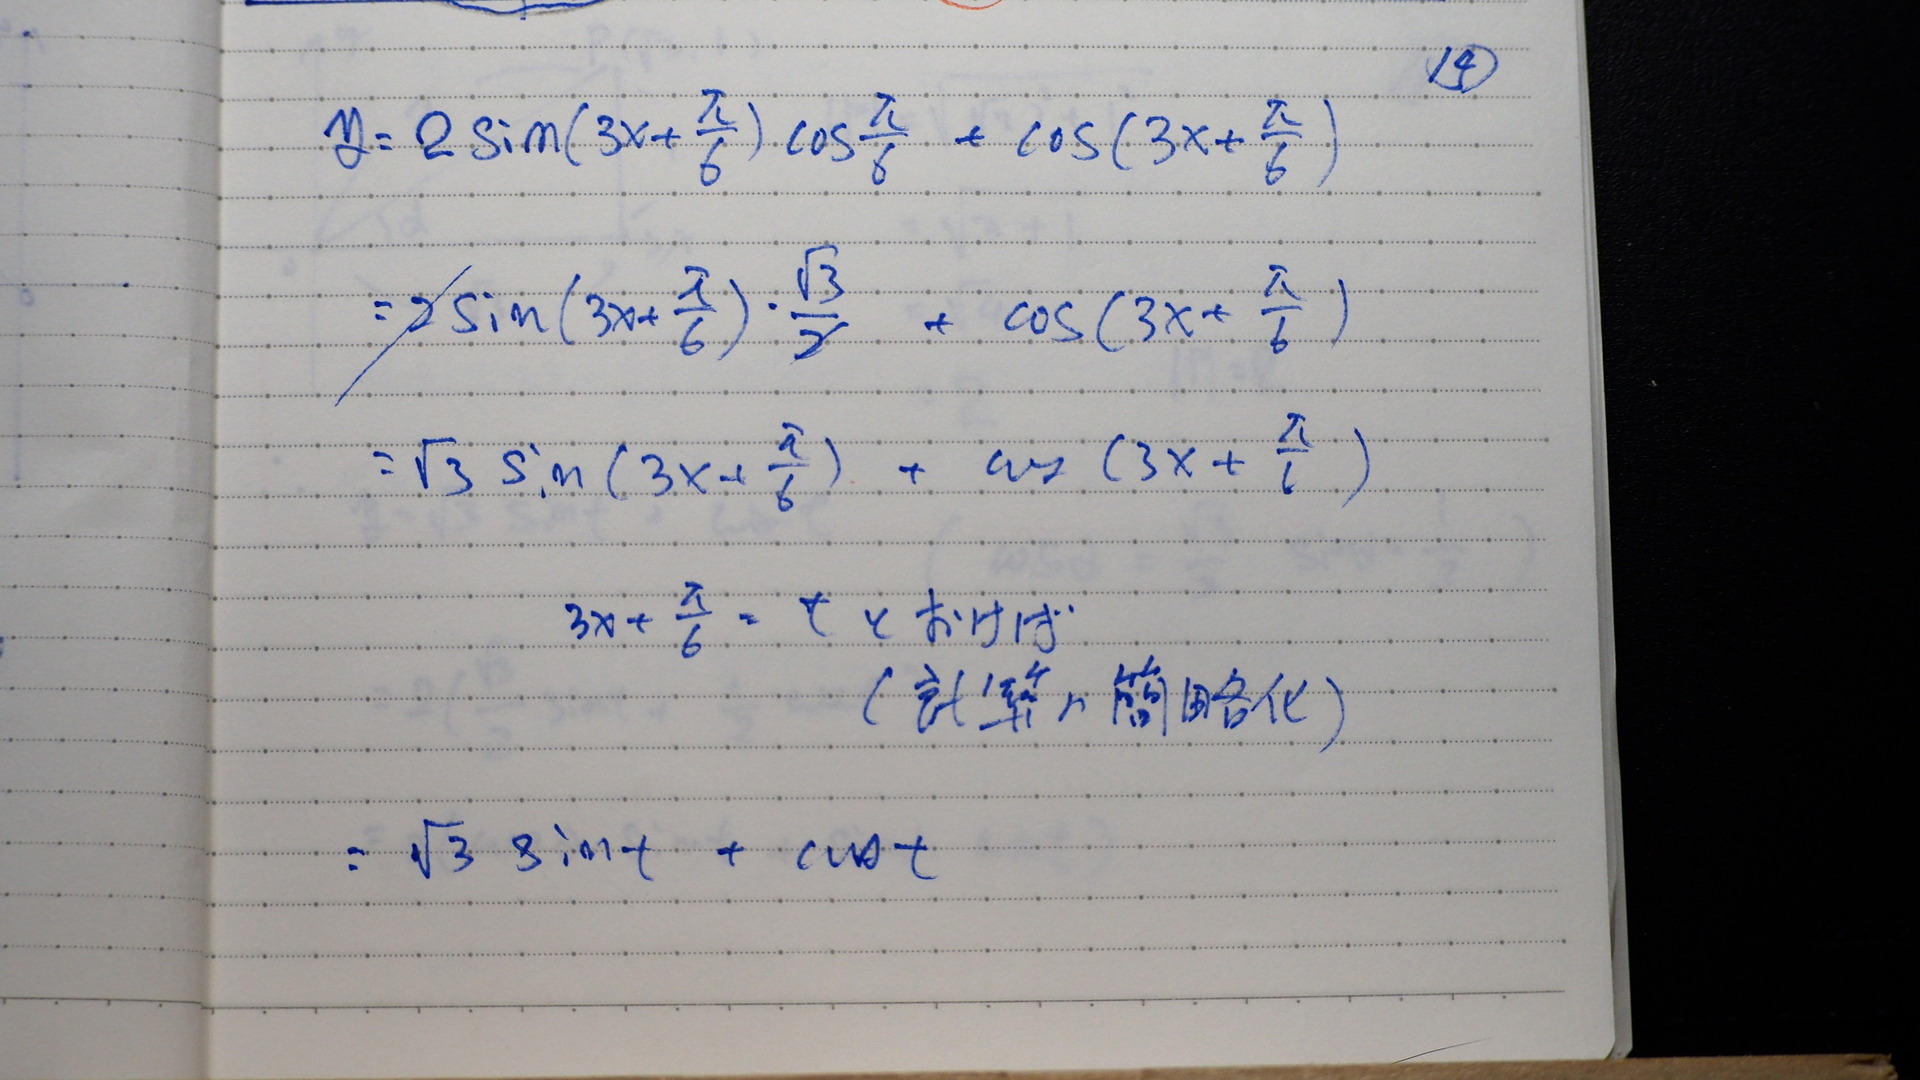 ⑭
y = 2 sin(3x + π/6) cos π/6 + cos(3x + π/6)
= 2 sin(3x + π/6) · √3/2 + cos(3x + π/6)
= √3 sin(3x + π/6) + cos(3x + π/6)
3x + π/6 = t とおけば
(計算の簡略化)
= √3 sin t + cos t